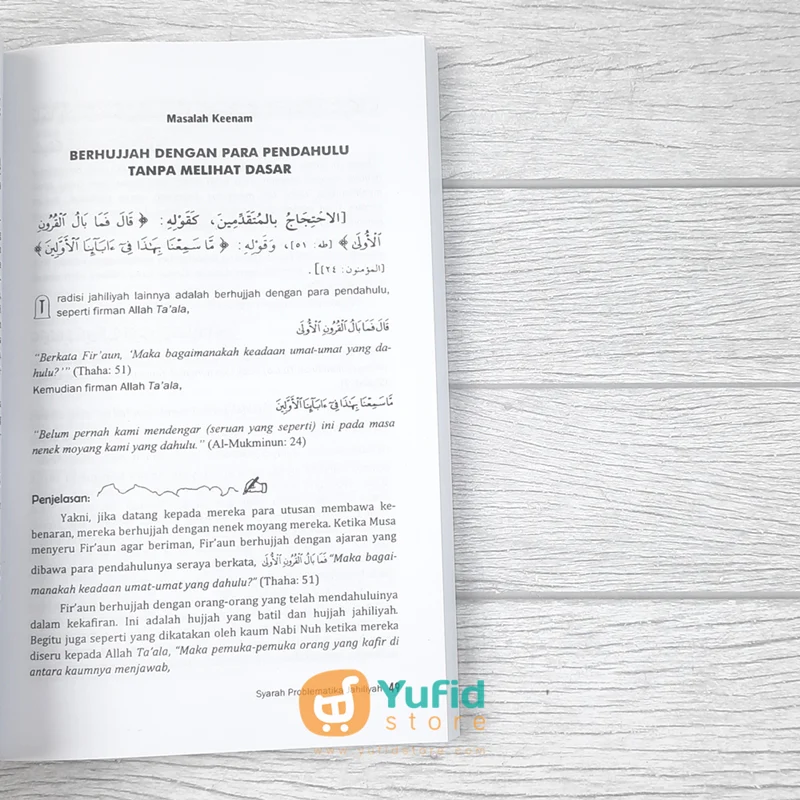 Masalah Keenam
BERHUJJAH DENGAN PARA PENDAHULU
TANPA MELIHAT DASAR
[الاحْتِجَاجُ بِالْمُتَقَدِّمِينَ، كَقَوْلِهِ: ﴿ قَالَ فَمَا بَالُ ٱلْقُرُونِ
ٱلْأُولَىٰ ﴾ [طه: ٥١]، وَقَوْلِهِ: ﴿ مَّا سَمِعْنَا بِهَٰذَا فِىٓ ءَابَآئِنَا ٱلْأَوَّلِينَ ﴾
[المؤمنون: ٢٤]].
Tradisi jahiliyah lainnya adalah berhujjah dengan para pendahulu,
seperti firman Allah Ta'ala,
قَالَ فَمَا بَالُ ٱلْقُرُونِ ٱلْأُولَىٰ
"Berkata Fir'aun, 'Maka bagaimanakah keadaan umat-umat yang da-
hulu?'" (Thaha: 51)
Kemudian firman Allah Ta'ala,
مَّا سَمِعْنَا بِهَٰذَا فِىٓ ءَابَآئِنَا ٱلْأَوَّلِينَ
"Belum pernah kami mendengar (seruan yang seperti) ini pada masa
nenek moyang kami yang dahulu." (Al-Mukminun: 24)
Penjelasan:
Yakni, jika datang kepada mereka para utusan membawa ke-
benaran, mereka berhujjah dengan nenek moyang mereka. Ketika Musa
menyeru Fir'aun agar beriman, Fir'aun berhujjah dengan ajaran yang
dibawa para pendahulunya seraya berkata, فَمَا بَالُ ٱلْقُرُونِ ٱلْأُولَىٰ "Maka bagai-
manakah keadaan umat-umat yang dahulu?" (Thaha: 51)
Fir'aun berhujjah dengan orang-orang yang telah mendahuluinya
dalam kekafiran. Ini adalah hujjah yang batil dan hujjah jahiliyah.
Begitu juga seperti yang dikatakan oleh kaum Nabi Nuh ketika mereka
diseru kepada Allah Ta'ala, "Maka pemuka-pemuka orang yang kafir di
antara kaumnya menjawab,
Syarah Problematika Jahiliyah 49
Yufid
store
www.yufidstore.com